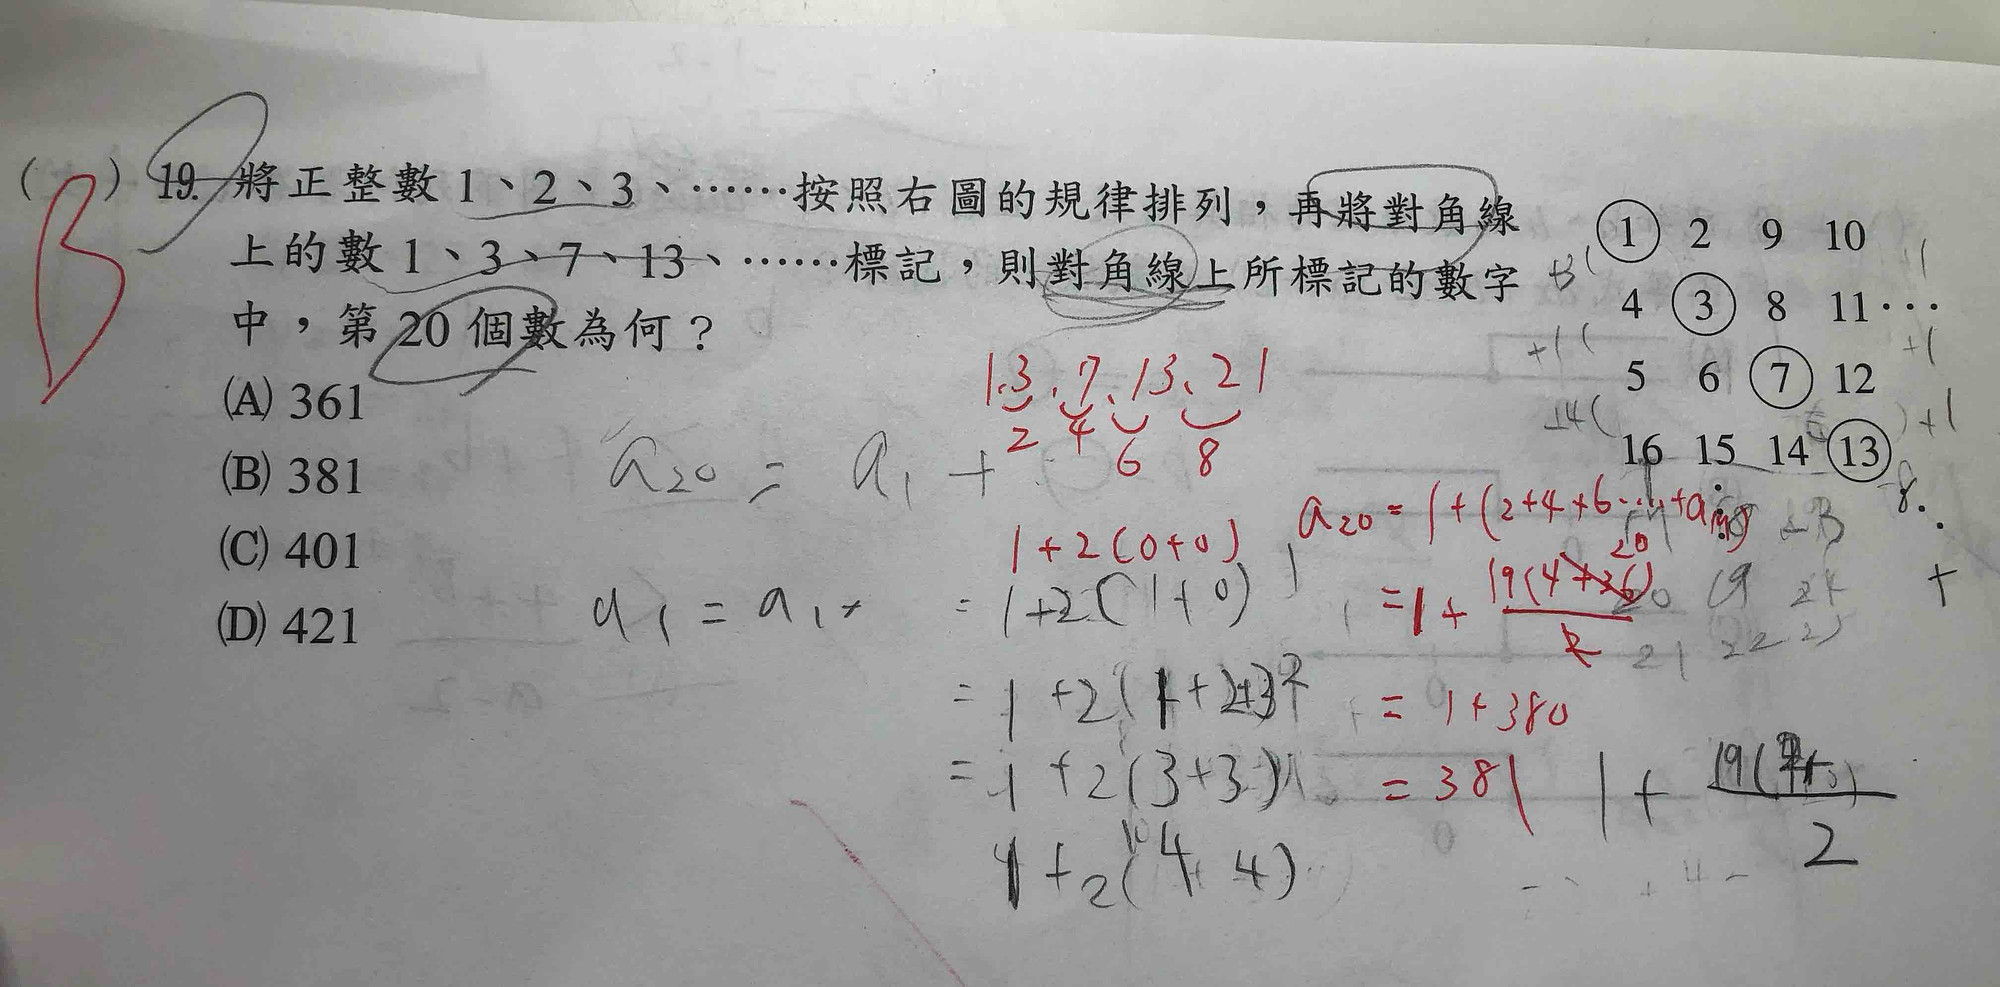 ( B ) 19. 將正整數 1、2、3、……按照右圖的規律排列，再將對角線
上的數 1、3、7、13、……標記，則對角線上所標記的數字
中，第 20 個數為何？
(A) 361
(B) 381
(C) 401
(D) 421
1 2 9 10
4 3 8 11 …
5 6 7 12
16 15 14 13
1.3.7.13.21
2 4 6 8
a20 = a1 +
1+2(0+0)
a1 = a1+
= 1+2(1+0)
= 1+2(1+2+3)
= 1+2(3+3)
1+2(4+4)
a20 = 1+(2+4+6…+a19)
20
= 1+ 19(4+36)
2
= 1+380
= 381
1+ 19(
2